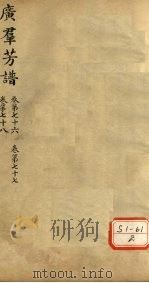 廣羣芳譜
卷第七十六 卷第七十七
卷第七十八
51-61
2
mtoou.info